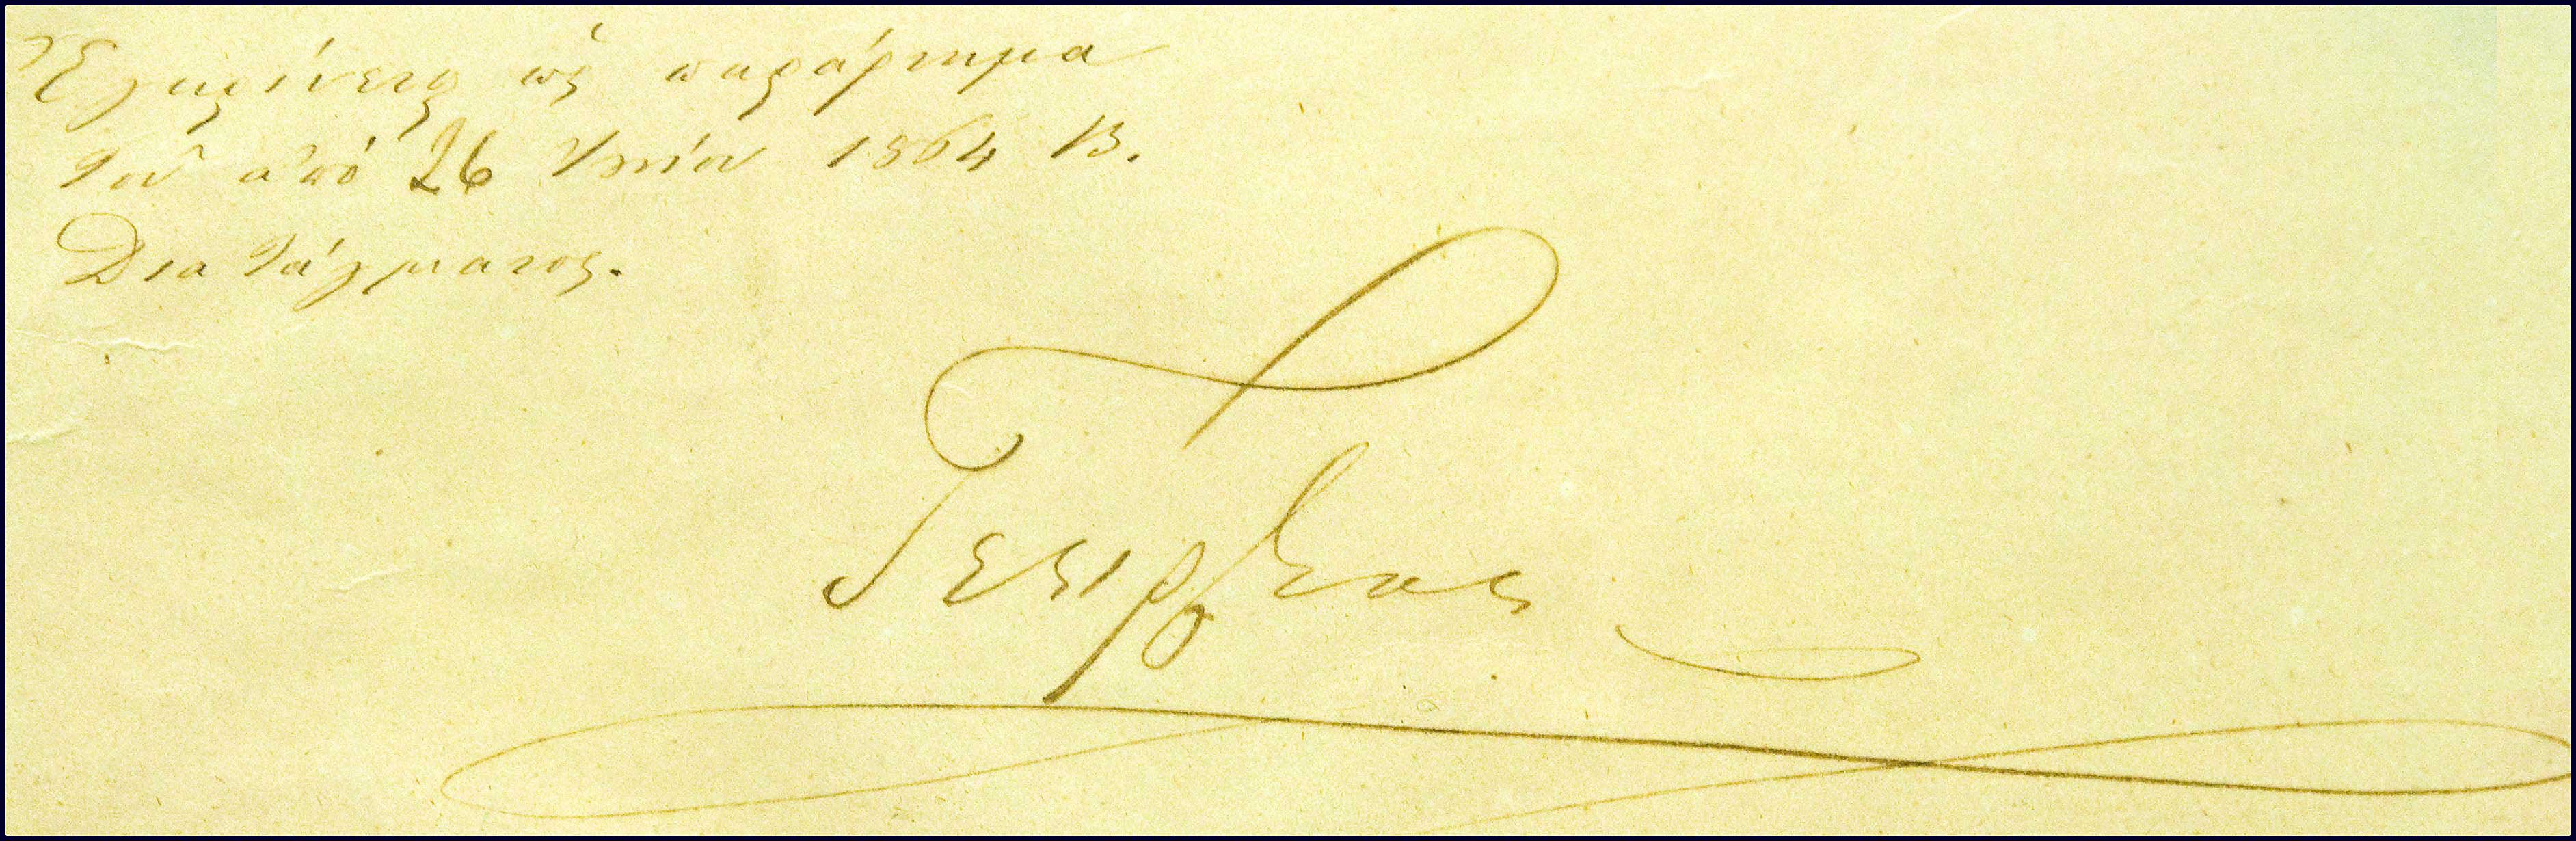 Ἐγκρίνεται ὡς παράρτημα
τοῦ ἀπὸ 26 1864 Β.
Διατάγματος.
Γεώργιος